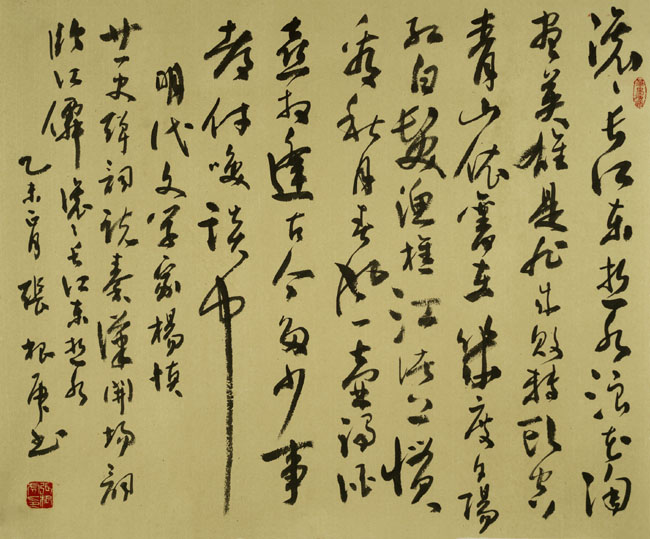 滚々长江东逝水浪花淘
尽英雄是非成败转头空
青山依舊在幾度夕陽
红白髮渔樵江渚上惯
看秋月春风一壶濁酒
喜相逢古今多少事
都付咲谈中
明代文学家楊慎
廿一史弹词说秦漢開場词
临江僊滚々长江东逝水
乙未正月張根虎书